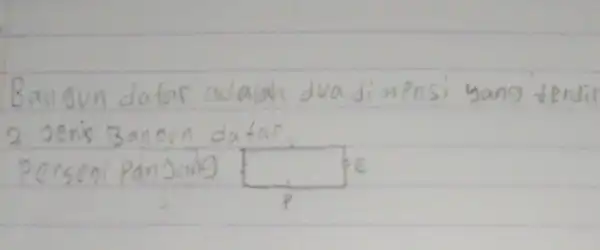 Bangun datar adalah dua dimensi yang terdir
2 Jenis Bangun datar
Persegi Panjang
P